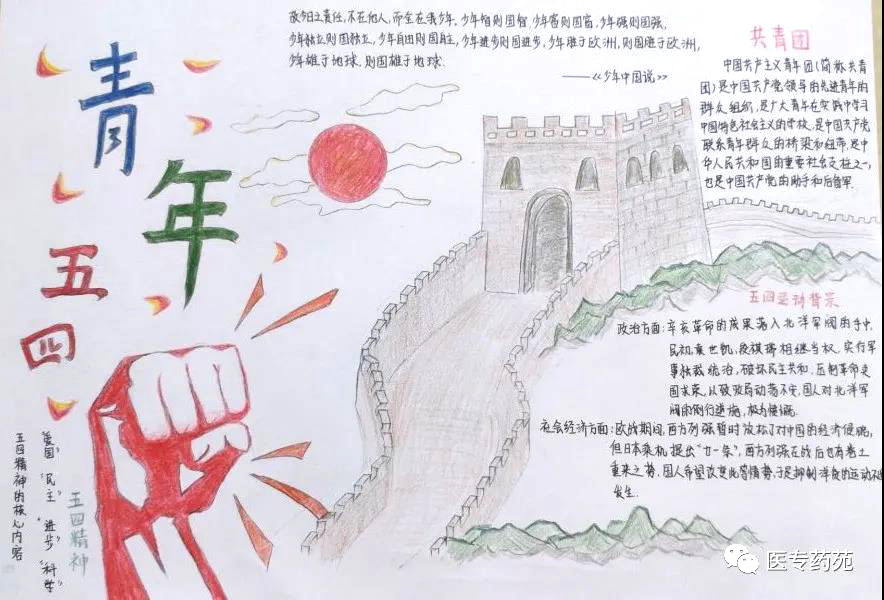 青年
五四
故今日之责任,不在他人,而全在我少年。少年智则国智,少年富则国富,少年强则国强,
少年独立则国独立,少年自由则国自由,少年进步则国进步,少年胜于欧洲,则国胜于欧洲,
少年雄于地球,则国雄于地球.
——《少年中国说》
共青团
中国共产主义青年团(简称共青
团)是中国共产党领导的先进青年的
群众组织,是广大青年在实践中学习
中国特色社会主义的学校,是中国共产党
联系青年群众的桥梁和纽带,是中
华人民共和国的重要社会支柱之一,
也是中国共产党的助手和后备军.
五四运动背景
政治方面:辛亥革命的成果落入北洋军阀的手中.
民初袁世凯,段祺瑞相继当权,实行军
事独裁统治,破坏民主共和,压制革命
求索,以致政局动荡不安,国人对北洋军
阀的倒行逆施,极为愤慨.
社会经济方面:欧战期间,西方列强暂时放松了对中国的经济侵略,
但日本乘机提出"廿一条",西方列强在战后也有卷土
重来之势,国人希望改变此等情势,于是抑制洋货的运动不
发生.
五四精神
"爱国""民主""进步""科学"
五四精神的核心内容
医专药苑